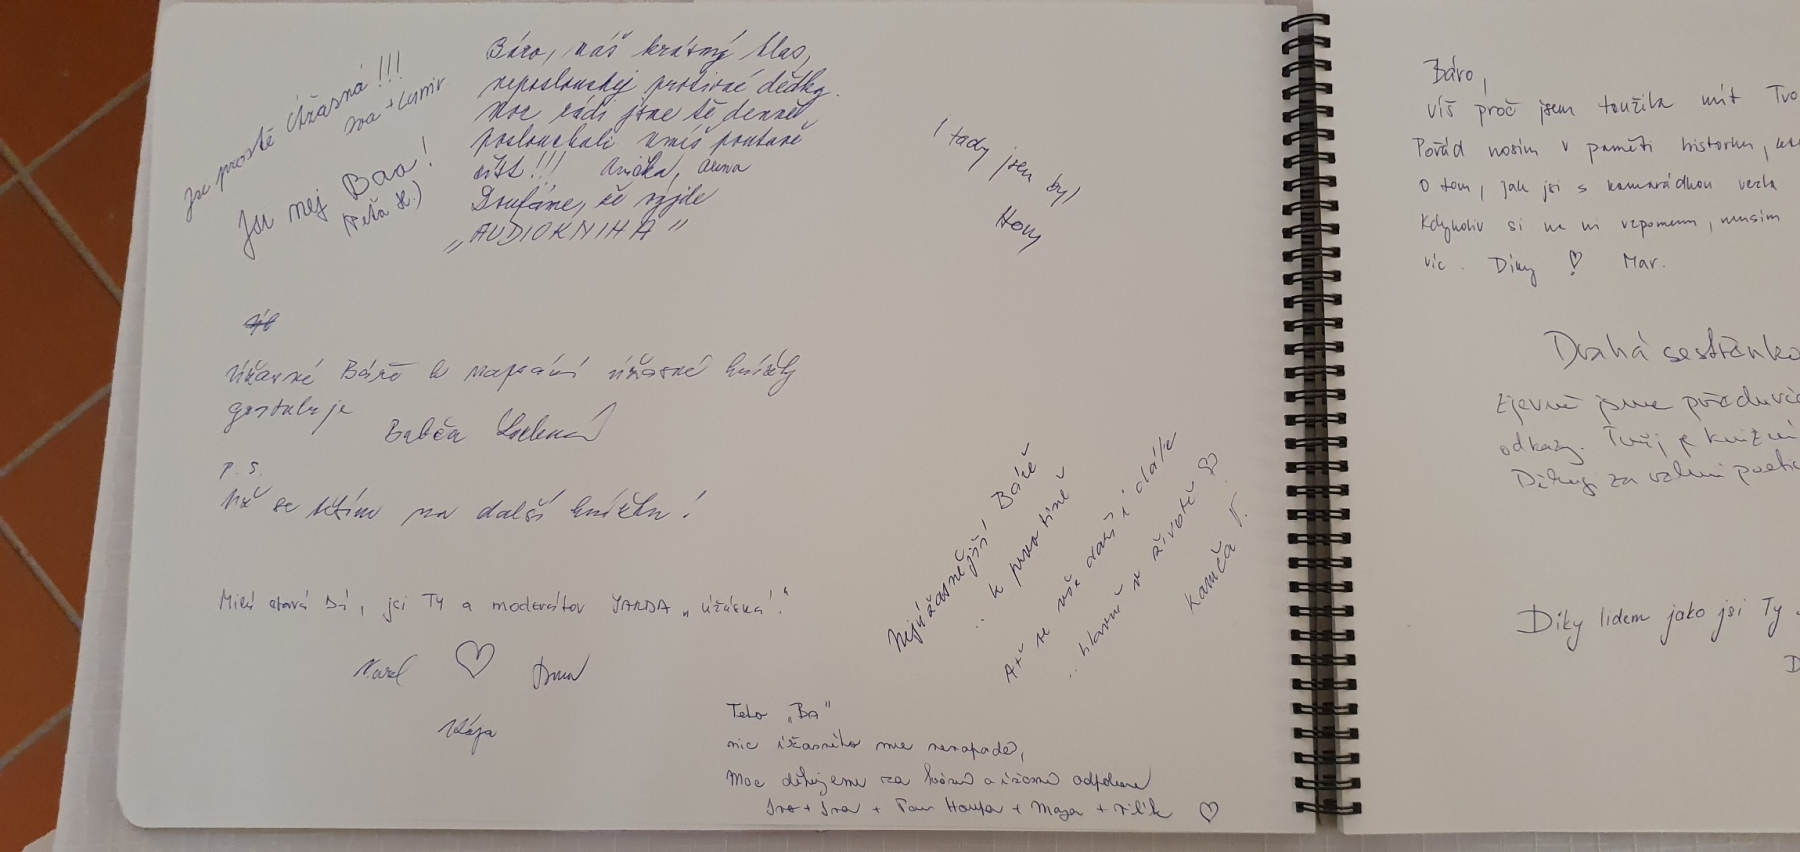 Jsi prostě úžasná!!!
Iva + Lumír
Jsi nej Baa!
(Peťa H.)
Báro, máš krásný hlas,
neposlouchej protivné dědky.
Moc rádi jsme tě denně
poslouchali umíš poutavě
číst!!! Anička, Anna
Doufáme, že vyjde
„AUDIOKNIHA"
I tady jsem byl
Hony
Úžasné Báře k napsání úžasné knížky
gratuluje
Babča
P.S.
Už se těším na další knížku!
Milá stará Bá, jsi Ty a moderátor JARDA „úžásná".
Karel ♡ Dana
Kája
Nejúžasnější Báře
.. k prvotině
Ať se vše daří i dále
.. hlavně v životě ♡
Kamča V.
Teto „BA"
nic úžasného mne nenapadá,
Moc děkujeme za krásné a úžasné odpoledne
Ivo + Iva + Tom + Maja + Filík ♡
Báro,
víš proč jsem toužila mít Tvo
Pořád nosím v paměti historku,
o tom, jak jsi s kamarádkou vezla
Kdykoliv si na ni vzpomenu, musím
víc. Díky ♡! Mar.
Drahá sestřenko
Zjevně jsme předurče
odkazy. Tvůj je knižní
Děkuji za
Díky lidem jako jsi Ty